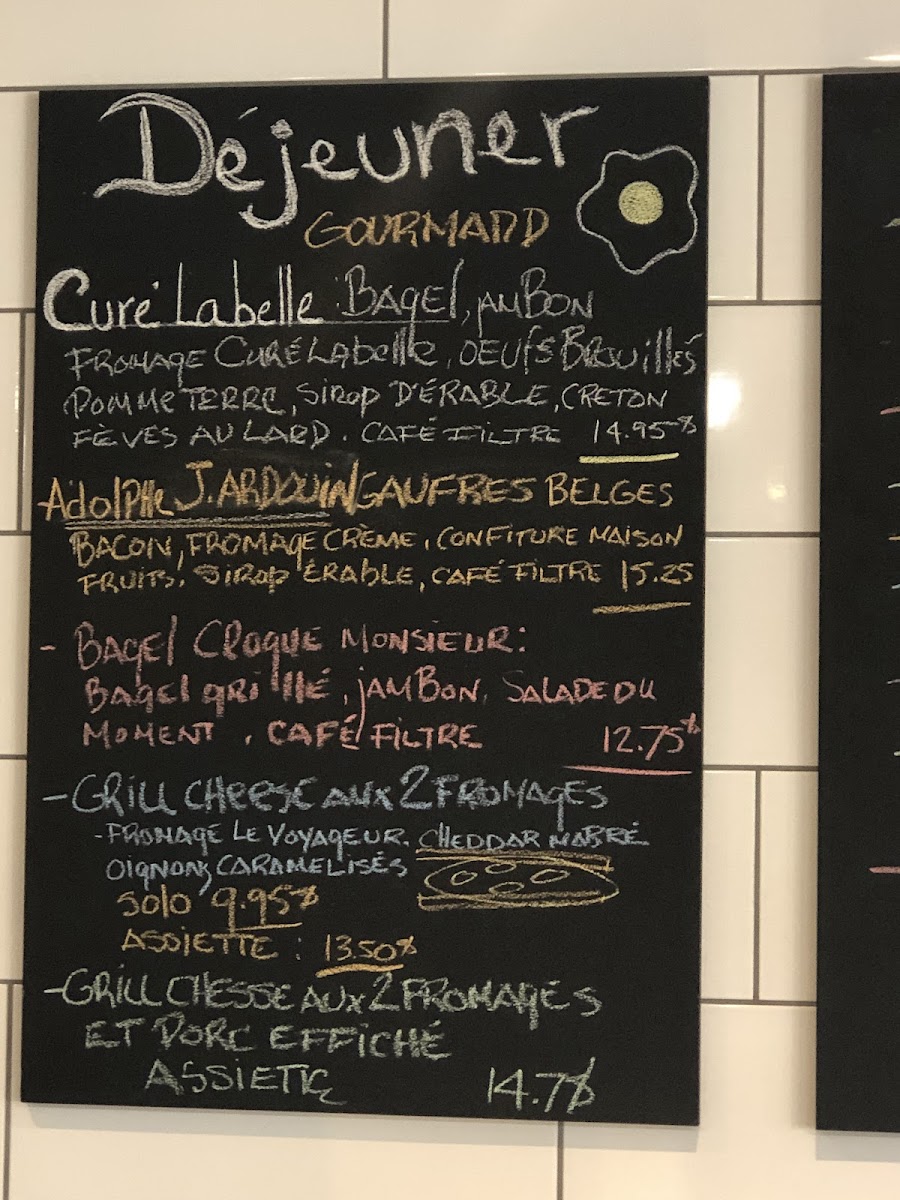 Déjeuner
GOURMAND
Curé Labelle : BAGEL, JAMBON
FROMAGE CURÉ LABELLE, OEUFS BROUILLÉS
POMME TERRE, SIROP D'ÉRABLE, CRETON
FÈVES AU LARD. CAFÉ FILTRE 14.95$
Adolphe J. ARDOUIN GAUFRES BELGES
BACON, FROMAGE CRÈME, CONFITURE MAISON
FRUITS, SIROP ÉRABLE, CAFÉ FILTRE 15.25
- BAGEL CROQUE MONSIEUR:
BAGEL GRILLÉ, JAMBON, SALADE DU
MOMENT, CAFÉ FILTRE 12.75$
- GRILL CHEESE AUX 2 FROMAGES
- FROMAGE LE VOYAGEUR. CHEDDAR MARBRÉ
OIGNONS CARAMELISÉS
SOLO 9.95$
ASSIETTE : 13.50$
- GRILL CHESSE AUX 2 FROMAGES
ET PORC EFFICHÉ
ASSIETTE 14.7$